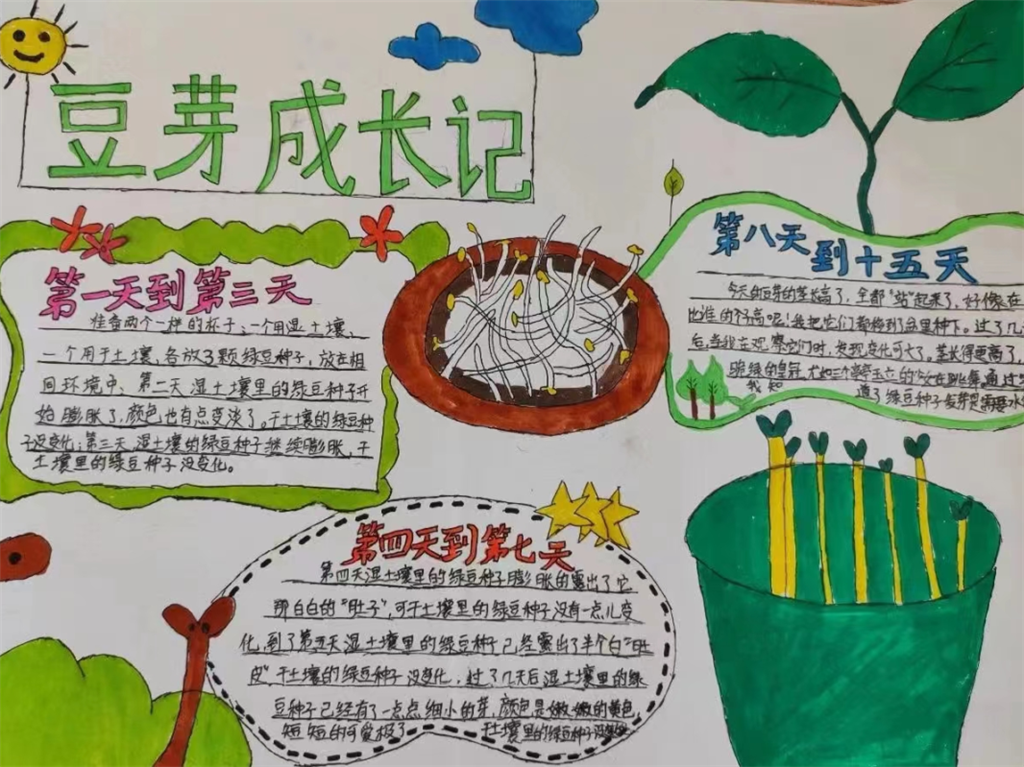 豆芽成长记
第一天到第三天
准备两个一样的杯子:一个用湿土壤、
一个用干土壤、各放3颗绿豆种子,放在相
同环境中、第二天湿土壤里的绿豆种子开
始膨胀了,颜色也有点变淡了。干土壤的绿豆种
子没变化;第三天湿土壤的绿豆种子继续膨胀,干
土壤里的绿豆种子没变化。
第四天到第七天
第四天湿土壤里的绿豆种子膨胀的露出了它
那白白的"肚子",可干土壤里的绿豆种子没有一点儿变
化,到了第五天湿土壤里的绿豆种子已经露出了半个白"肚
皮",干土壤的绿豆种子没变化,过了几天后湿土壤里的绿
豆种子已经有了一点点细小的芽,颜色是嫩嫩的黄色
短短的可爱极了 干土壤里的绿豆种子没
第八天到十五天
今天的豆芽的茎长高了,全都"站"起来了,好像在
比谁的个高呢!我把它们都移到了盆里种下。过了几
后,当我在观察它们时,发现变化可大了。茎长得更高了,
碗绿的皇冠 尤如三个亭亭玉立的 在跳舞通过
我知道了绿豆种子发芽是需要水